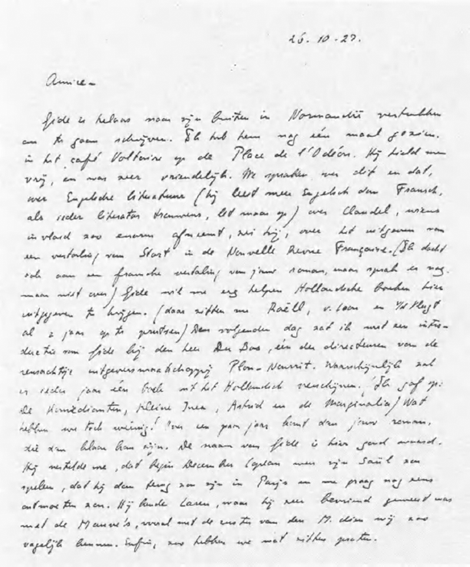 26.10-27.
Amice -
Gide is helaas naar zijn buiten in Normandië vertrokken
om te gaan schrijven. Ik heb hem nog één maal gezien.
in het café Voltaire op de Place de l'Odéon. Hij hield me
vrij, en was zeer vriendelijk. We spraken over dit en dat,
over Engelsche literatuur (hij leest meer Engelsch dan Fransch,
als ieder literator trouwens, let maar op) over Claudel, wiens
invloed zoo enorm afneemt, zei hij, over het uitgeven van
een vertaling van in de Nouvelle Revue Française. (Ik dacht
ook aan een fransche vertaling van jouw roman, maar sprak er nog
maar niet over) Gide wil me erg helpen Hollandsche boeken hier
uitgegeven te krijgen. (daar zitten me Raëll, v. Loon en
al 2 jaar op te) Den volgenden dag zat ik met een intro-
ductie van Gide bij den heer Du Bos, één der directeuren van de
uitgeversmaatschappij Plon-Nourrit. Waarschijnlijk zal
er ieder jaar één boek uit het Hollandsch verschijnen. Ik gaf op:
De Komedianten, Kleine Inez, en de Marginalia) Wat
hebben we toch weinig! Over een paar jaar komt dan jouw roman,
die dan klaar kan zijn. De naam van Gide is hier goud waard.
Hij vertelde me, dat begin December Copeau weer zijn Saül zou
spelen, dat hij dan terug zou zijn in Parijs en me graag nog eens
ontmoeten zou. Hij kende Laren, waar hij zeer bevriend geweest was
met de Mauve's, vooral met de van den M. dien wij zoo
vagelijk kennen. Enfin, zoo hebben we wat zitten praten.